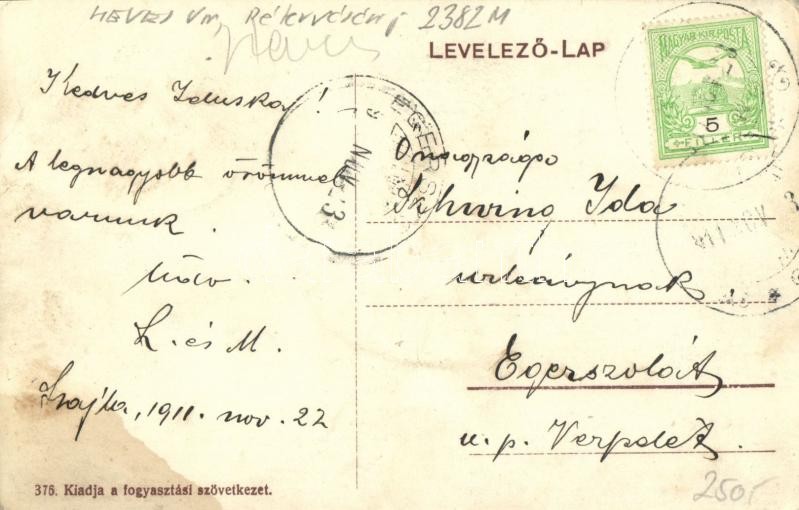 HEVES Vm, 2382M
LEVELEZŐ-LAP
MAGYAR KIR. POSTA
5
FILLÉR
Kedves Iduska!
A legnagyobb örömmel
várunk.
Üdv.
L. és M.
Szajla, 1911. nov. 22
Önagysága
Schwing Ida
urleánynak.
Egerszolát
u. p. Verpelét.
376. Kiadja a fogyasztási szövetkezet.
250,-